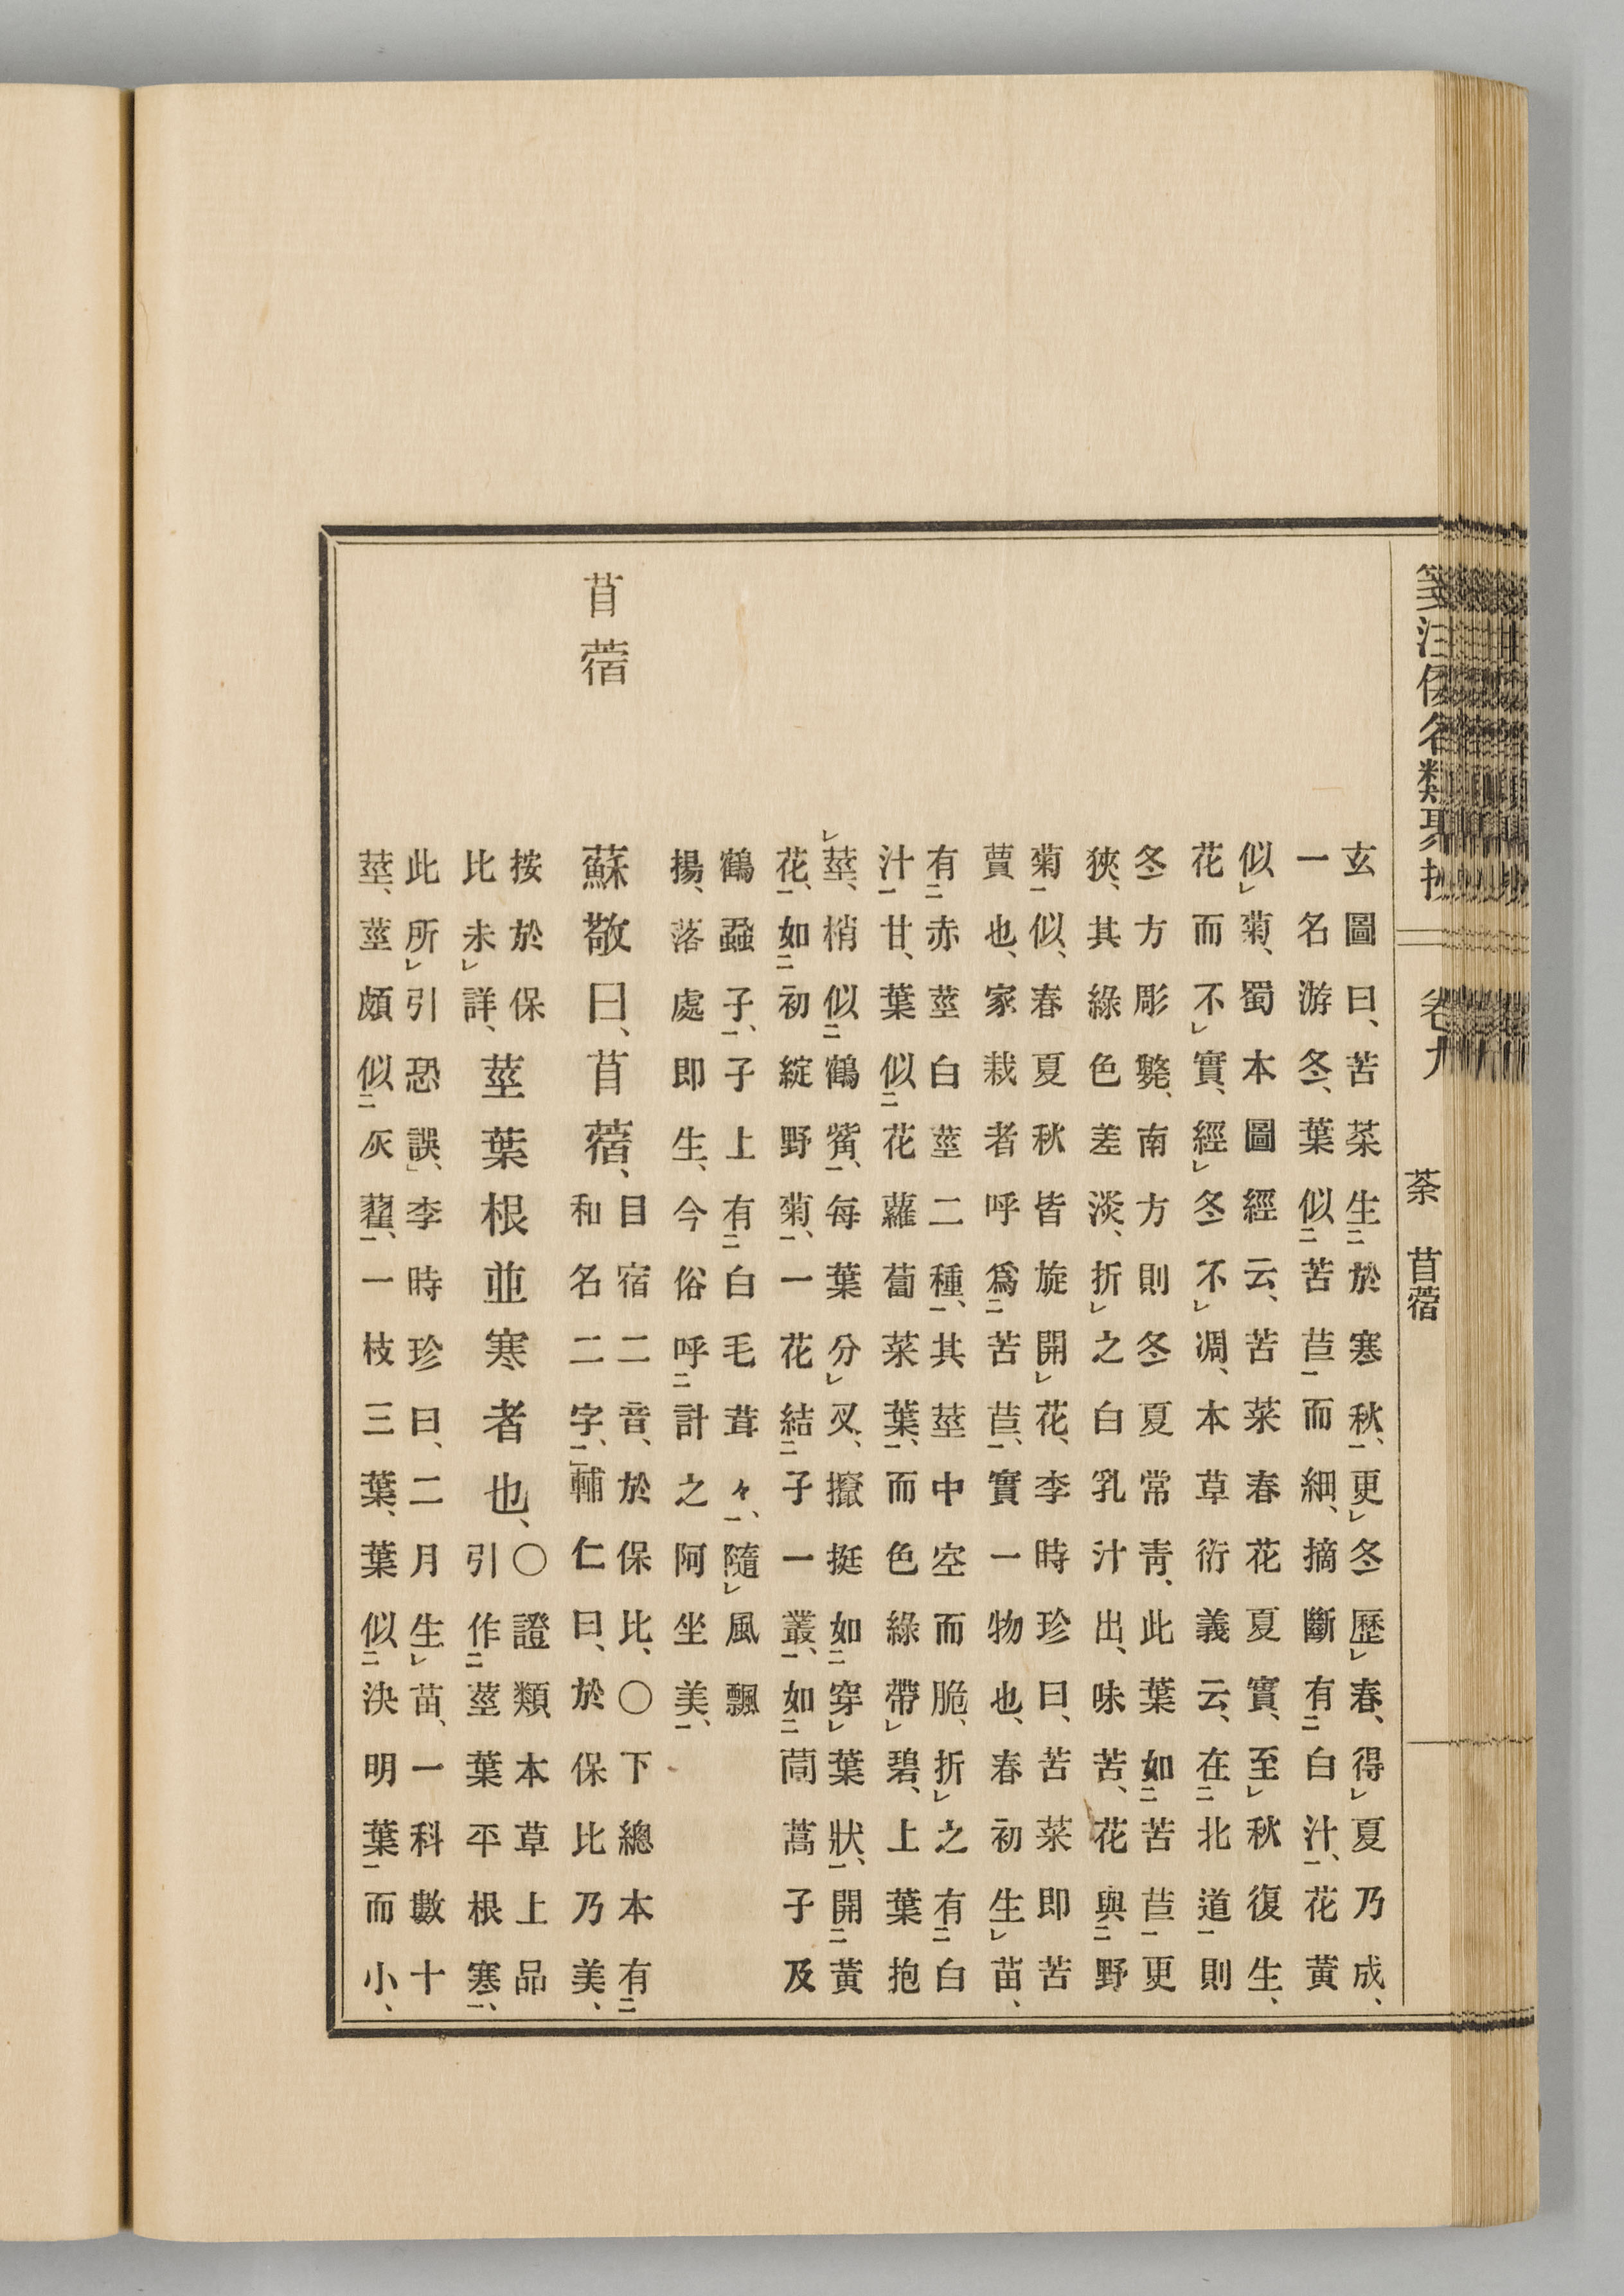 箋注倭名類聚抄 卷九 荼 苜蓿
玄圖曰、苦菜生於寒秋、更冬歷春、得夏乃成、
一名游冬、葉似苦苣而細、摘斷有白汁、花黃
似菊、蜀本圖經云、苦菜春花夏實、至秋復生、
花而不實、經冬不凋、本草衍義云、在北道則
冬方彫斃、南方則冬夏常靑、此葉如苦苣更
狹、其綠色差淡、折之白乳汁出、味苦、花與野
菊似、春夏秋皆旋開花、李時珍曰、苦菜即苦
蕒也、家栽者呼爲苦苣、實一物也、春初生苗、
有赤莖白莖二種、其莖中空而脆、折之有白
汁甘、葉似花蘿蔔菜葉、而色綠帶碧、上葉抱
莖、梢似鶴觜、每葉分叉、攛挺如穿葉狀、開黃
花、如初綻野菊、一花結子一叢、如茼蒿子及
鶴蝨子、子上有白毛茸々、隨風飄
揚、落處即生、今俗呼計之阿坐美、
苜蓿
蘇敬曰、苜蓿、
目宿二音、於保比、〇下總本有
和名二字、輔仁曰、於保比乃美、
按於保
比未詳、
莖葉根並寒者也、
〇證類本草上品
引作莖葉平根寒、
此所引恐誤、李時珍曰、二月生苗、一科數十
莖、莖頗似灰藋、一枝三葉、葉似決明葉而小、